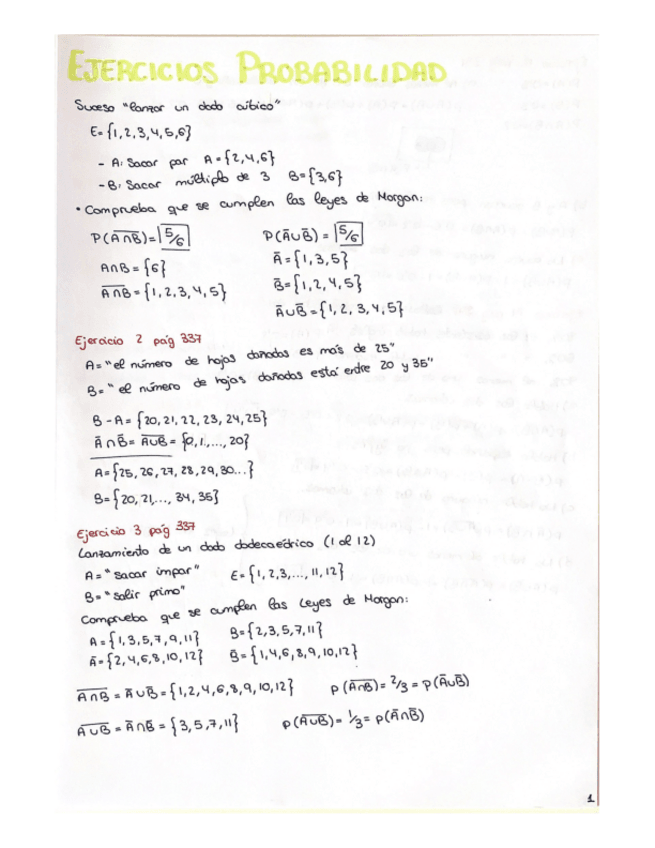 EJERCICIOS PROBABILIDAD
Suceso "lanzar un dado cúbico"
E={1,2,3,4,5,6}
- A: Sacar par A={2,4,6}
- B: Sacar múltiplo de 3 B={3,6}
• Comprueba que se cumplen las leyes de Morgan:
P(A̅∩̅B̅)=5/6 P(A̅∪B̅)=5/6
A̅={1,3,5}
A∩B={6}
B̅={1,2,4,5}
A̅∩̅B̅={1,2,3,4,5}
A̅∪B̅={1,2,3,4,5}
Ejercicio 2 pág 337
A="el número de hojas dañadas es más de 25"
B="el número de hojas dañadas está entre 20 y 35"
B-A={20,21,22,23,24,25}
A̅∩B̅=A̅∪̅B̅={0,1,...,20}
A={25,26,27,28,29,30...}
B={20,21,...,34,35}
Ejercicio 3 pág 337
Lanzamiento de un dado dodecaédrico (1 al 12)
A="sacar impar" E={1,2,3,...,11,12}
B="salir primo"
Comprueba que se cumplen las Leyes de Morgan:
A={1,3,5,7,9,11} B={2,3,5,7,11}
A̅={2,4,6,8,10,12} B̅={1,4,6,8,9,10,12}
A̅∩̅B̅=A̅∪B̅={1,2,4,6,8,9,10,12} p(A̅∩̅B̅)=2/3=p(A̅∪B̅)
A̅∪̅B̅=A̅∩B̅={3,5,7,11} p(A̅∪̅B̅)=1/3=p(A̅∩B̅)
1